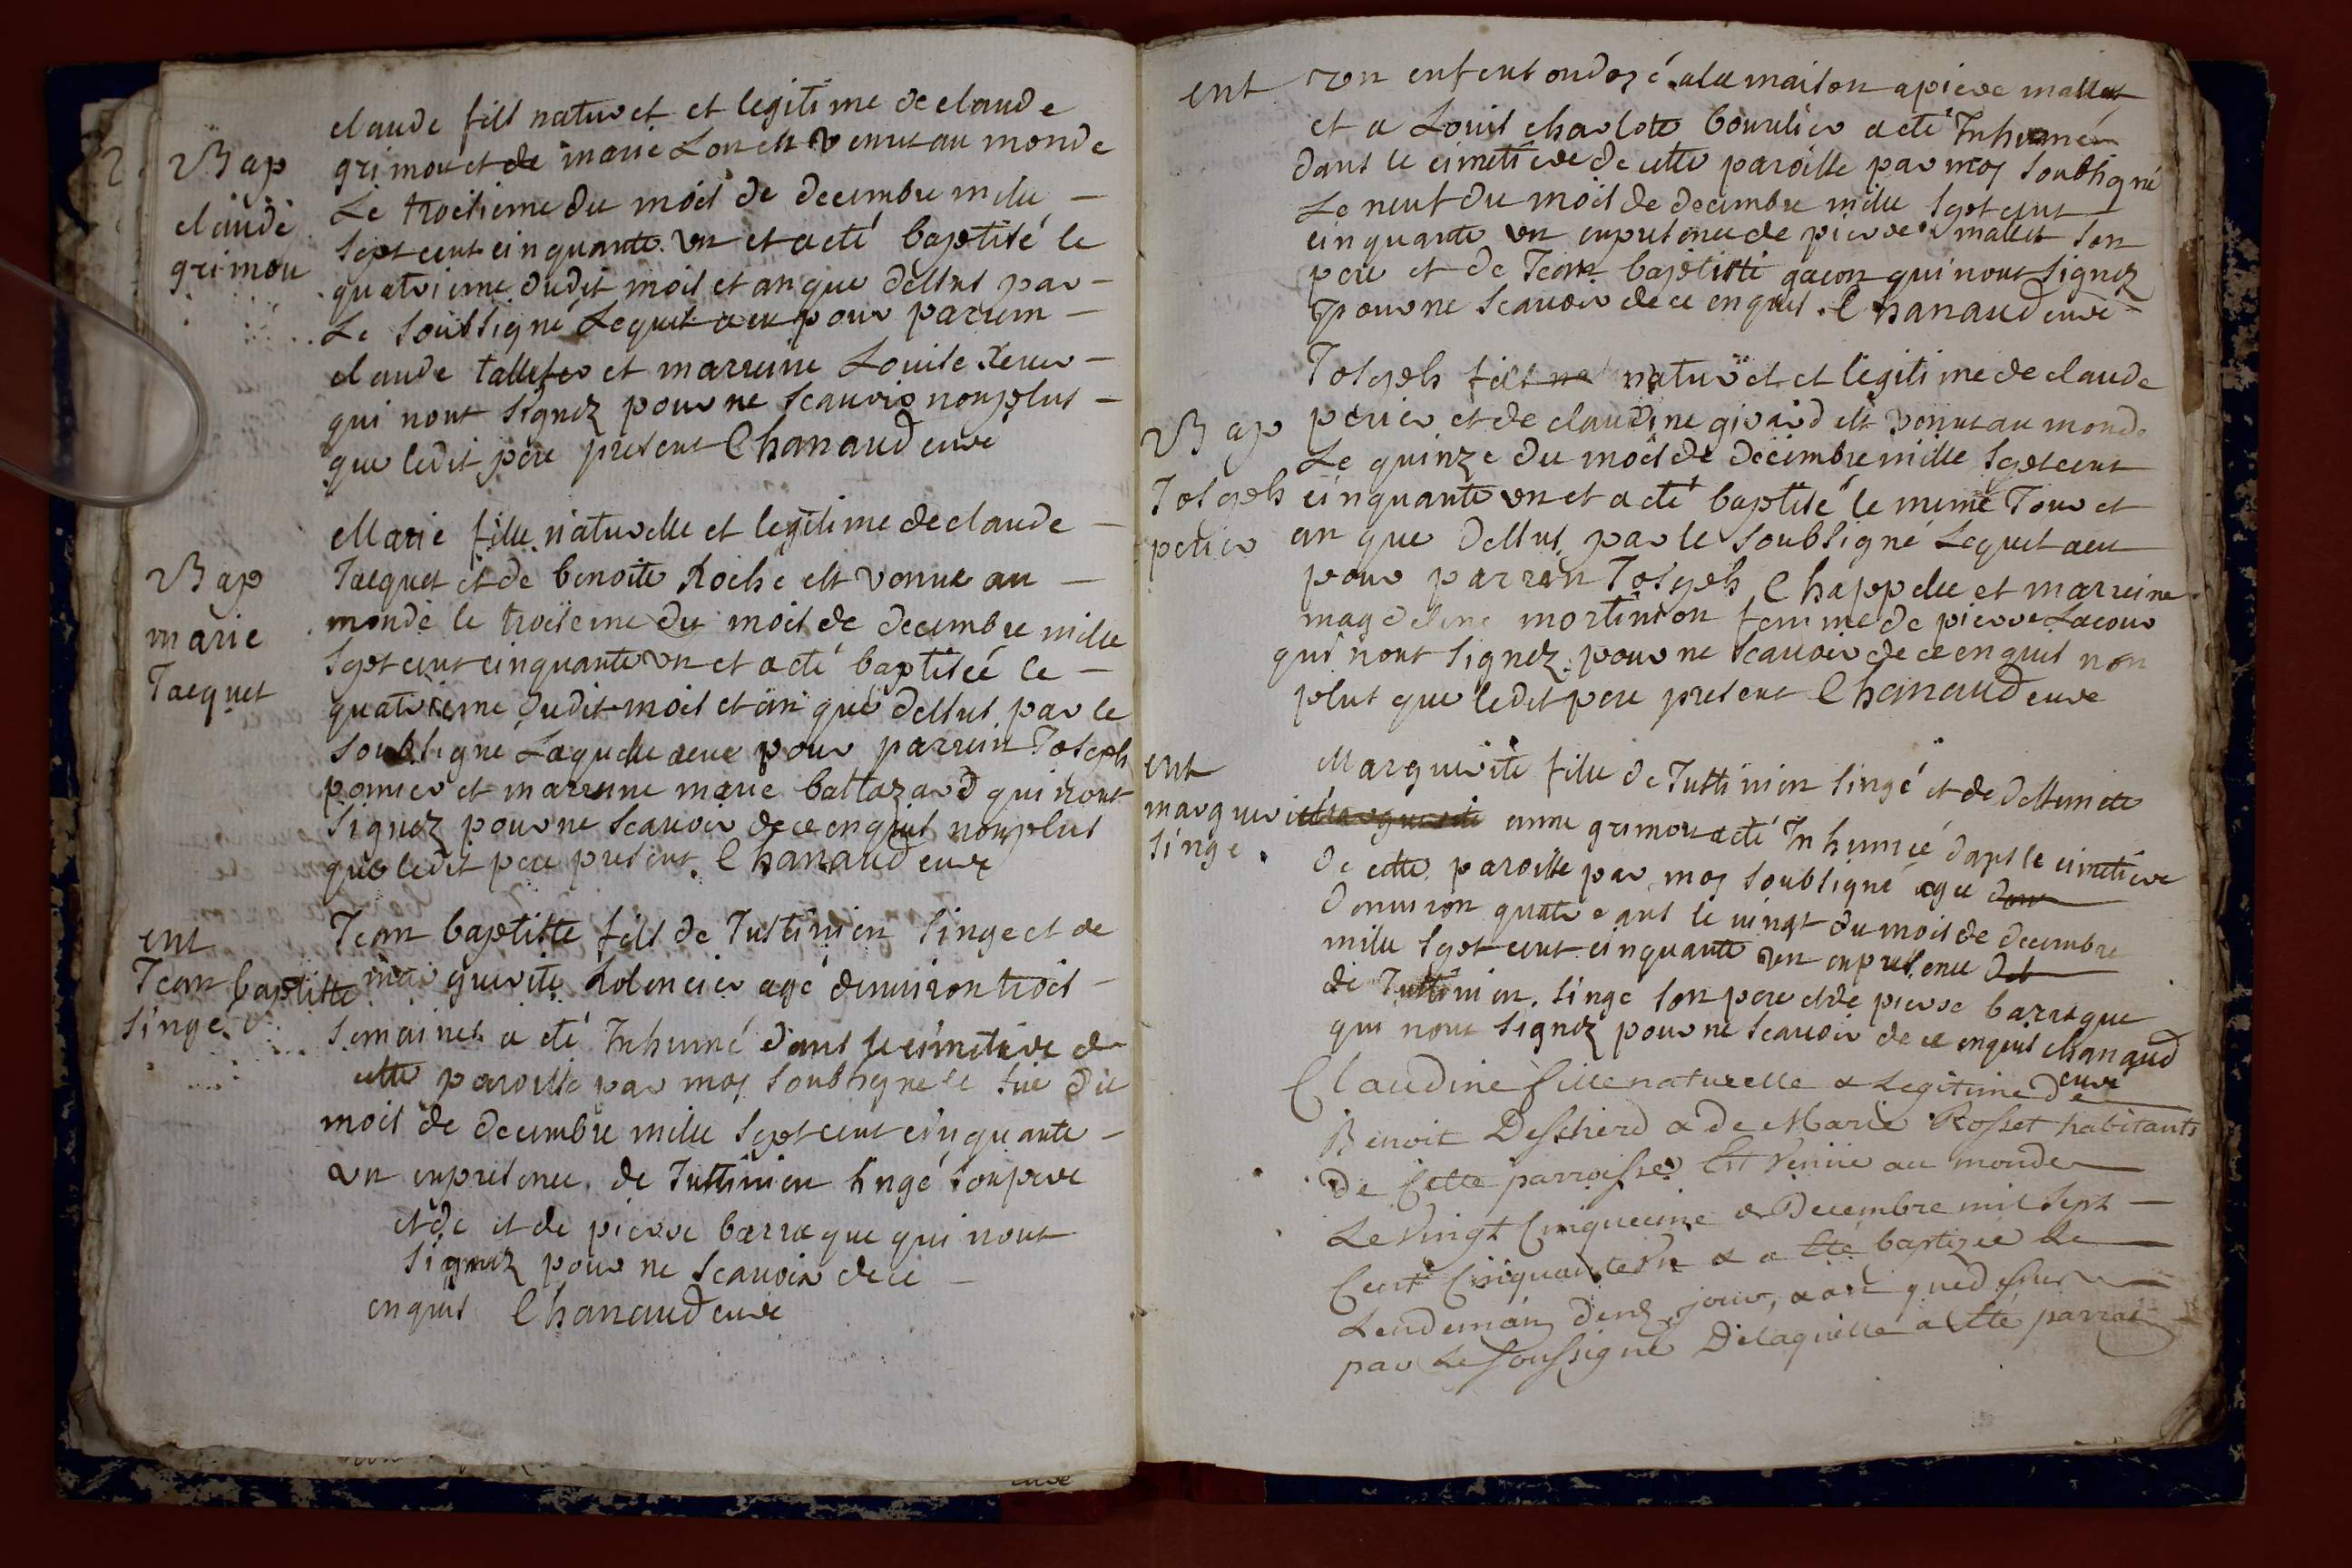 Bap
claude
grimou
claude fils naturel et legitime de claude
grimou et de marie Lon est venus au monde
Le troisieme du mois de decembre mille
sept cent cinquante un et a eté baptisé le
quatrieme dudit mois et an que dessus par
Le soubsigné Lequel a eu pour parrein
claude tallefer et marreine Louise
qui nont signez pour ne scauoir non plus
que ledit pere present Chanaud curé
Bap
marie
Jacquet
Marie fille naturelle et legitime de claude
Jacquet et de benoite Roche est venue au
monde le troisieme du mois de decembre mille
sept cent cinquante un et a eté baptisée le
quatrieme dudit mois et an que dessus par le
soubsigné Laquelle a eue pour parrein Joseph
ponier et marreine marie baltazard qui nont
signez pour ne scauoir de ce enquis non plus
que ledit pere present Chanaud curé
ent
Jean baptiste
singe
Jean baptiste fils de Justinien singe et de
marguerite agé denuiron trois
semaines a eté Inhumé dans le cimetiere de
cette paroisse par moy soubsigné le six du
mois de decembre mille sept cent cinquante
un en presence de Justinien singé son pere
et de et de pierre barraque qui nont
signez pour ne scauoir de ce
enquis Chanaud curé
ent
un enfent ondoyé a la maison a piere mallet
et a Louis charlote bourlier a eté Inhumée
dans le cimetiere de cette paroisse par moy soubsigné
Le neuf du mois de decembre mille sept cent
cinquante un en presence de pierre mallet son
pere et de Jean baptiste gacon qui nont signez
pour ne scauoir de ce enquis. Chanaud curé
Bap
Joseph
perier
Joseph fils na naturel et legitime de claude
perier et de claudine girard est venus au monde
Le quinze du mois de decembre mille sept cent
cinquante un et a eté baptisé le meme Jour et
an que dessus par le soubsigné Lequel a eu
pour parrein Joseph Chappelle et marreine
magdelene mortinion femme de pierre Lacour
qui nont signez pour ne scauoir de ce enquis non
plus que ledit pere present Chanaud curé
ent
marguerite
singe
Marguerite fille de Justinien singé et de deffunete
anne grimou a eté Inhumée dans le cimetiere
de cette paroisse par moy soubsigné agée
denuiron quatre ans le vingt du mois de decembre
mille sept cent cinquante un en presence de
de Justinien singe son pere et de pierre barraque
qui nont signez pour ne scauoir de ce enquis chanaud
curé
Claudine fille naturelle & Legitime de
Benoit Descherd & de Marie Rosset habitants
de Cette parroisse Est Venüe au monde
Le Vingt Cinquieme de Decembre mil sept
Cent Cinquante Un & a Eté baptizée Le
Lendemain dud. jour, & an que dessus
par Le soussigné De laquelle a Eté parrain